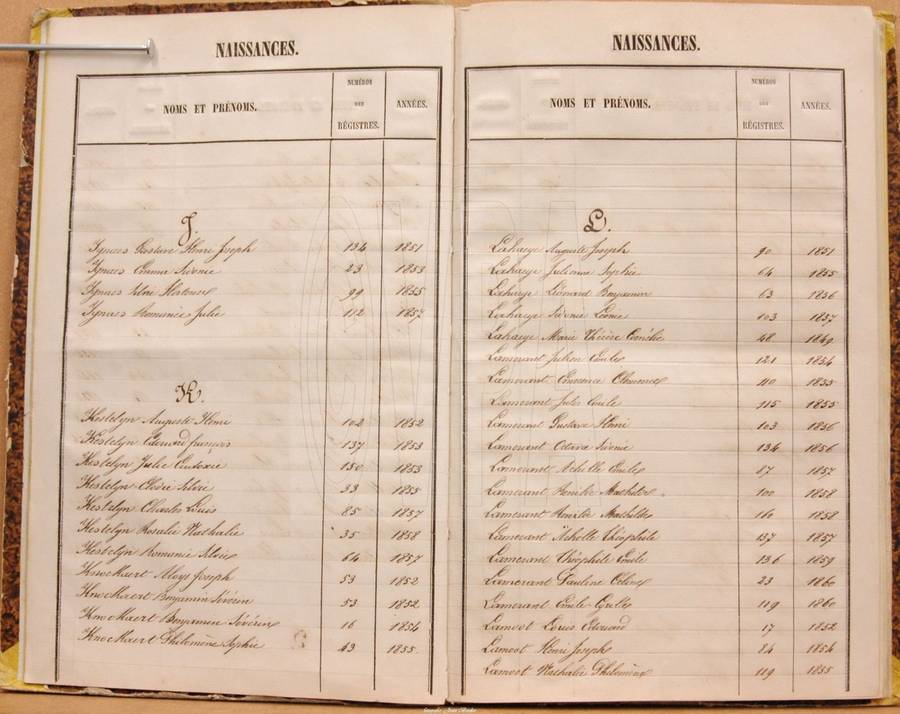 NAISSANCES.
NOMS ET PRÉNOMS. NUMÉROS DES RÉGISTRES. ANNÉES.
J.
Ignaes Gustave Henri Joseph 134 1851
Ignaes Emma Sidonie 23 1853
Ignaes Silvie Hortense 99 1855
Ignaes Romanie Julie 112 1857
K.
Kestelyn Auguste Henri 102 1852
Kestelyn Edouard françois 137 1853
Kestelyn Julie Eudoxie 150 1853
Kestelyn Elodie Silvie 33 1855
Kestelyn Charles Louis 85 1857
Kestelyn Rosalie Nathalie 35 1858
Kestelyn Romanie Silvie 64 1857
Knockaert Aloys Joseph 53 1852
Knockaert Benjamin Séverin 53 1852
Knockaert Benjamin Séverin 16 1854
Knockaert Philomène Sophie 43 1855
NAISSANCES.
NOMS ET PRÉNOMS. NUMÉROS DES RÉGISTRES. ANNÉES.
L.
Lahaeye Auguste Joseph 90 1851
Lahaeye Julienne Sophie 64 1855
Lahaeye Léonard Benjamin 63 1856
Lahaeye Sidonie Léonie 103 1857
Lahaeye Marie Thérèse Cornélie 48
Lamerant Julien Emile 121 1854
Lamerant Emerence Clemence 110 1855
Lamerant Jules Emile 115 1855
Lamerant Gustave Henri 103 1856
Lamerant Octavie Sidonie 134 1856
Lamerant Achille Emile 87 1857
Lamerant Mathilde 100 1858
Lamerant Mathilde 1858
Lamerant Achille Théophile 137 1857
Lamerant Théophile Emile 136 1859
Lamerant Pauline Céline 23 1860
Lamerant Emile Cyrille 119 1860
Lamoot Louis Edouard 17 1852
Lamoot Henri Joseph 84 1854
Lamoot Nathalie Philomène 119 1855